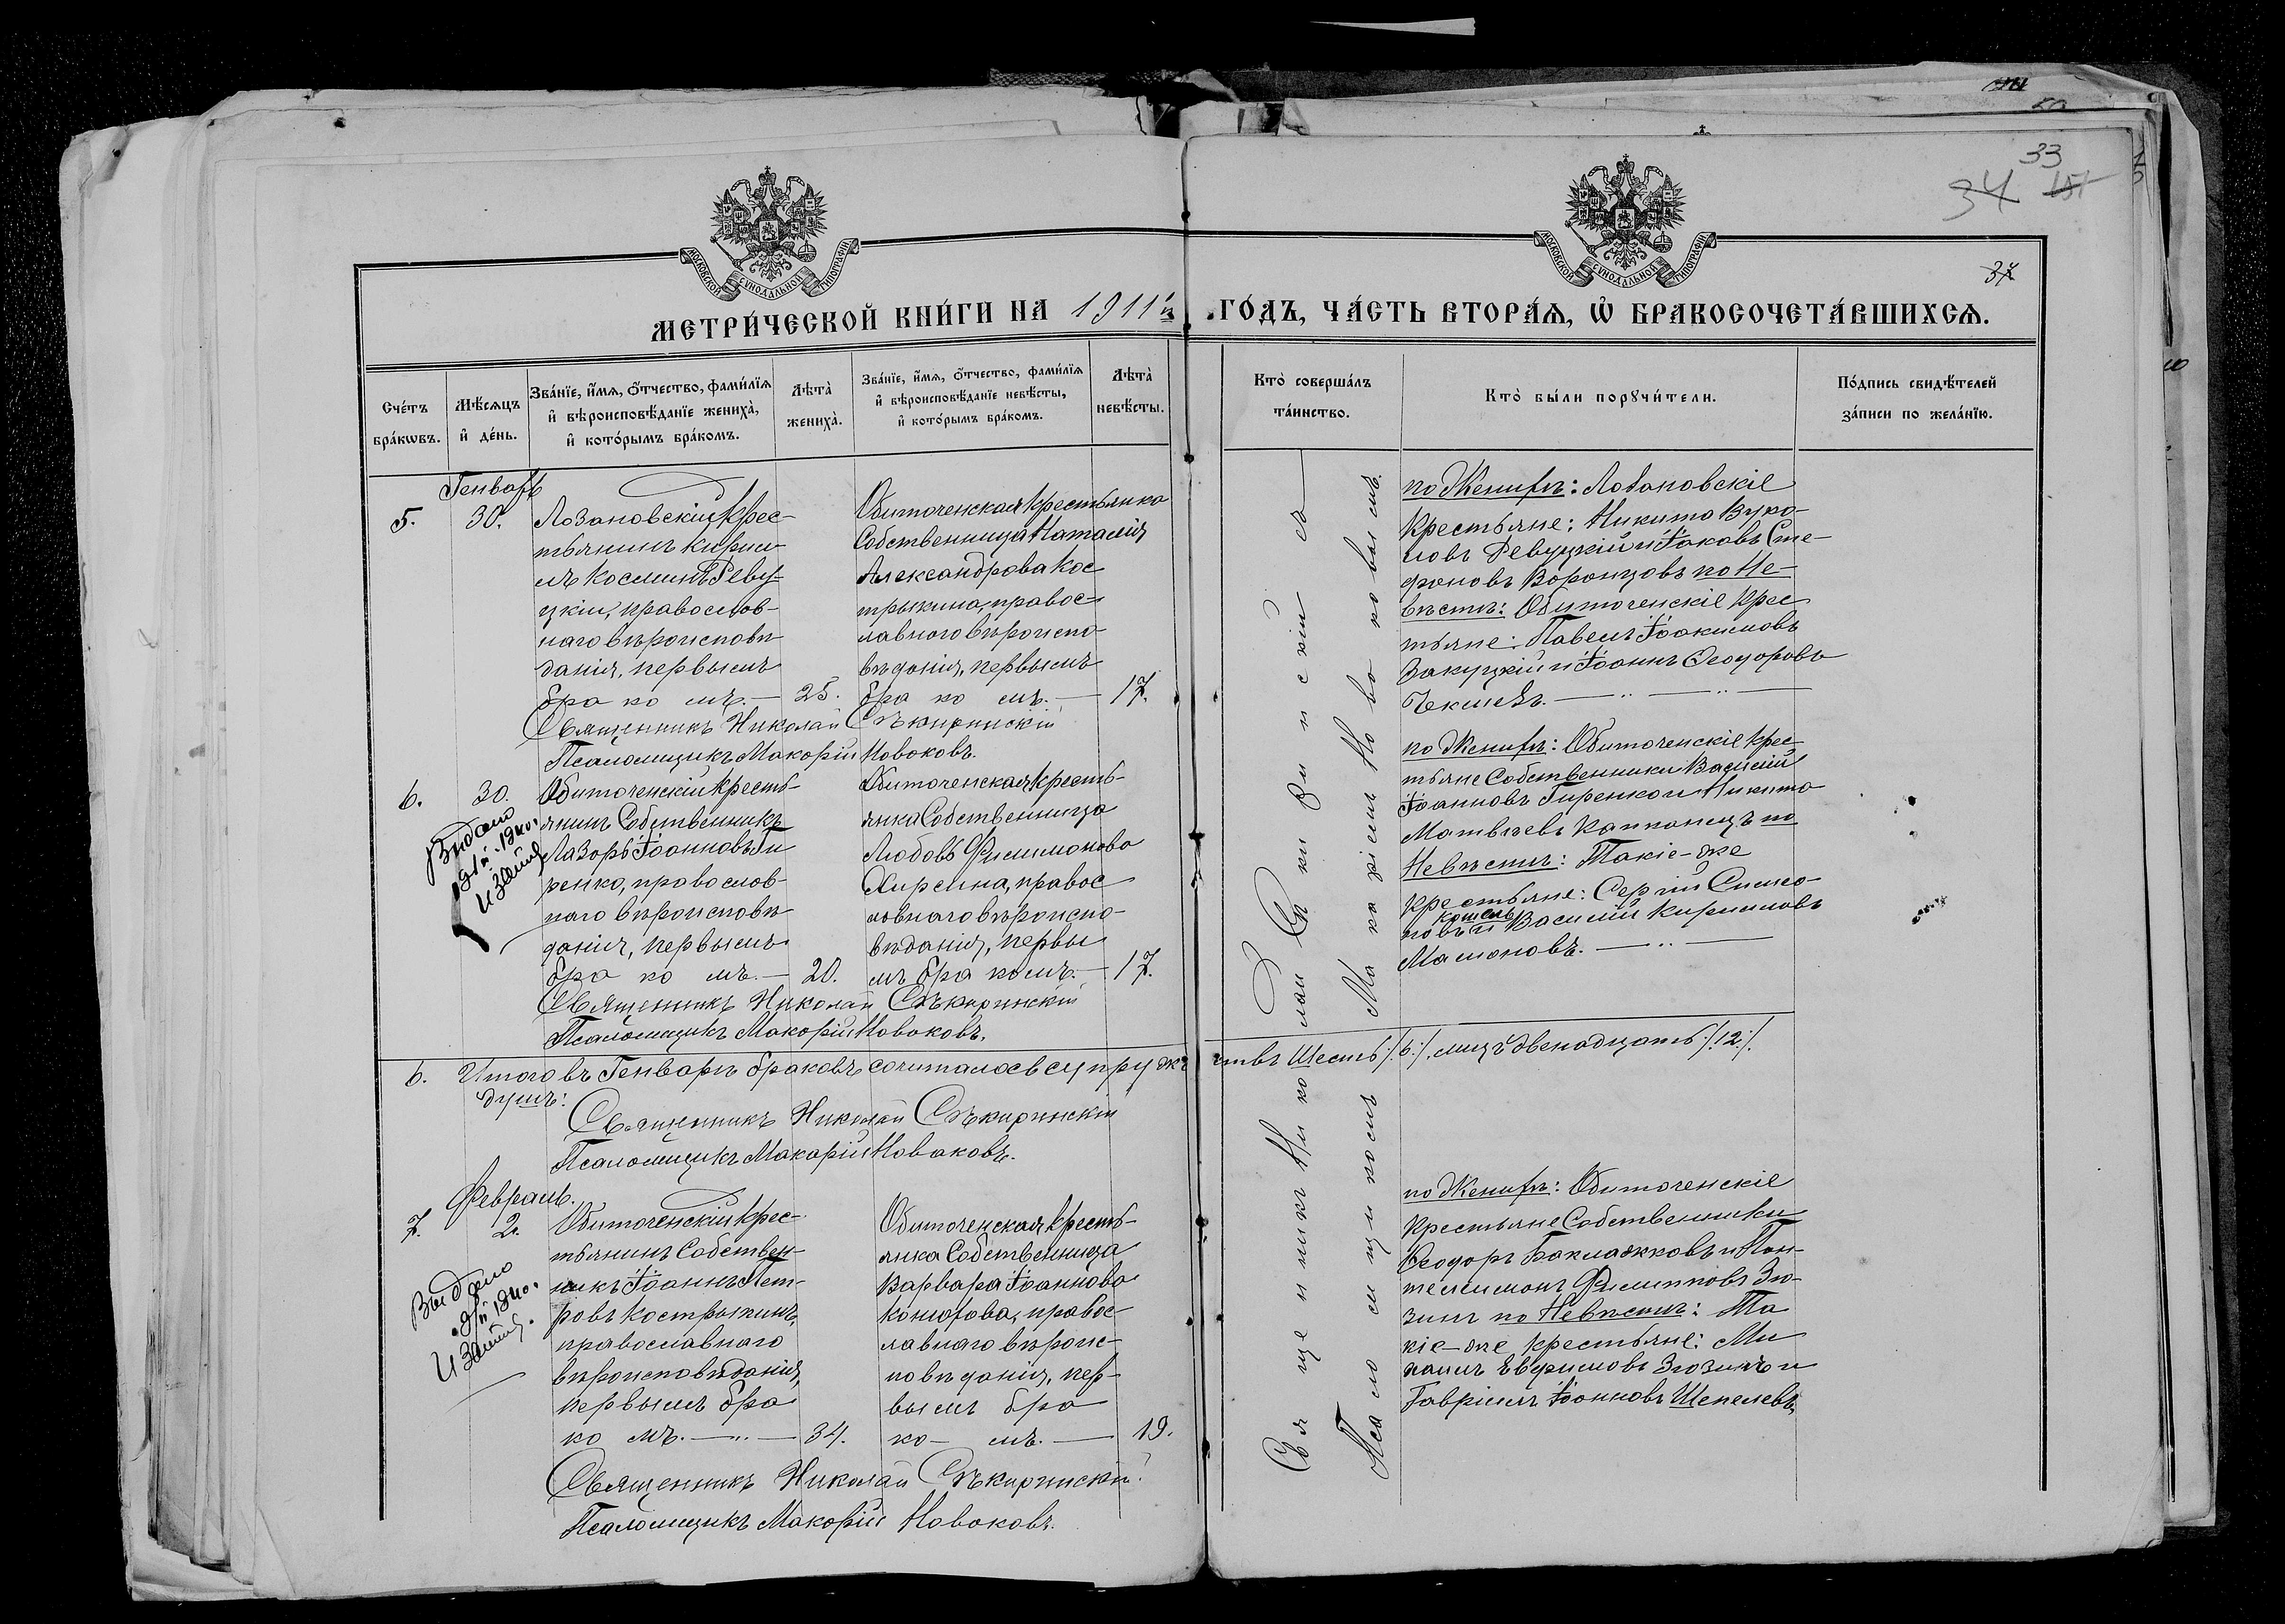 33
34 151
37
МОСКОВСКОЙ СѴНОДАЛЬНОЙ ТИПОГРАФІИ
МОСКОВСКОЙ СѴНОДАЛЬНОЙ ТИПОГРАФІИ
МЕТРИ́ЧЕСКОЙ КНИ́ГИ НА 1911й ГО́ДЪ, ЧА́СТЬ ВТОРА́Ѧ, Ѡ҆ БРАКОСОЧЕТА́ВШИХСѦ.
Сче́тъ бра́кѡвъ.
Мѣ́сяцъ и҆ де́нь.
Зва́нїе, и҆́мѧ, ѻ҆́тчество, фами́лїѧ
и҆ вѣроисповѣ́данїе жениха̀,
и҆ кото́рымъ бра́комъ.
Лѣта̀ жениха̀.
Зва́нїе, и҆́мѧ, ѻ҆́тчество, фами́лїѧ
и҆ вѣроисповѣ́данїе невѣ́сты,
и҆ кото́рымъ бра́комъ.
Лѣта̀ невѣ́сты.
Кто̀ соверша́лъ
та́инство.
Кто̀ бы́ли порꙋчи́тели.
По́дпись свидѣ́телей
за́писи по жела́нїю.
Генварь
5.
30.
Лозановскій крес-
тьянинъ Кирил-
лъ Косминъ Реву-
цкій, православ-
наго вѣроисповѣ-
данія, первымъ
бра ко мъ. — 25.
Обиточенская крестьянка
Собственница Наталія
Александрова Кос
трыкина, правос
лавного вѣроиспо-
вѣданія, первымъ
бра ко мъ. — 17.
Священникъ Николай Сѣкиринскій
Псаломщикъ Макорій Новаковъ.
по Женихѣ: Лозановскіе
крестьяне: Никита Вуко-
ловъ Ревуцкій и Іаковъ Сте-
фановъ Воронцовъ по Не-
вѣстѣ: Обиточенскіе крес
тьяне: Павелъ Іоакимовъ
Закуцкій и Іоаннъ Ѳеодоровъ
6.
30.
Выдано
1940.
и ЗАГ
Обиточенскій кресть-
янинъ Собственникъ
Лазорь Іоанновъ Ги
ренко, православ-
наго вѣроисповѣ
данія, первымъ
бра ко мъ. — 20.
Обиточенская кресть-
янка Собственница
Любовь Филимонова
Хирсина, правос
ловнаго вѣроиспо-
вѣданія, первы
мъ бра комъ. — 17.
Священникъ Николай Сѣкиринскій
Псаломщикъ Макорій Новаковъ.
по Женихѣ: Обиточенскіе крес-
тьяне Собственники Василій
Іоанновъ Гиренко и Никита
Матвѣевъ Капканецъ по
Невѣстѣ: Такіе-же
крестьяне: Сергій Симо-
новъ и Василій Кириловъ
Мамоновъ.
6. Итого въ Генварѣ браковъ сочиталось супружествъ Шесть /:6:/, лицъ двенадцать /:12:/.
душъ:
Священникъ Николай Сѣкиринскій
Псаломщикъ Макарій Новаковъ.
Февраль.
7.
2.
Выдано
1940.
и ЗАГ
Обиточенскій крес-
тьянинъ Собствен-
никъ Іоаннъ Пет-
ровъ Кострыкинъ,
православнаго
вѣроисповѣданія,
первымъ бра
ко мъ. — 34.
Обиточенская кресть-
янка Собственница
Варвара Іоаннова
Конюхова, правос-
лавнаго вѣроис-
повѣданія, пер-
вымъ бра
ко- мъ. — 19.
Священникъ Николай Сѣкиринскій
Псаломщикъ Макорій Новаковъ.
по Женихѣ: Обиточенскіе
крестьяне Собственники
Ѳеодоръ Баклажковъ и Пан-
телеимонъ Филипповъ Зю-
зинъ по Невѣстѣ: Та
кіе-же крестьяне: Ми
хаилъ Евфимовъ Зюзинъ и
Гавріилъ Іоанновъ Шепелевъ
Священникъ Николай Сѣкиринскій съ
Псаломщикомъ Макаріемъ Новаковымъ